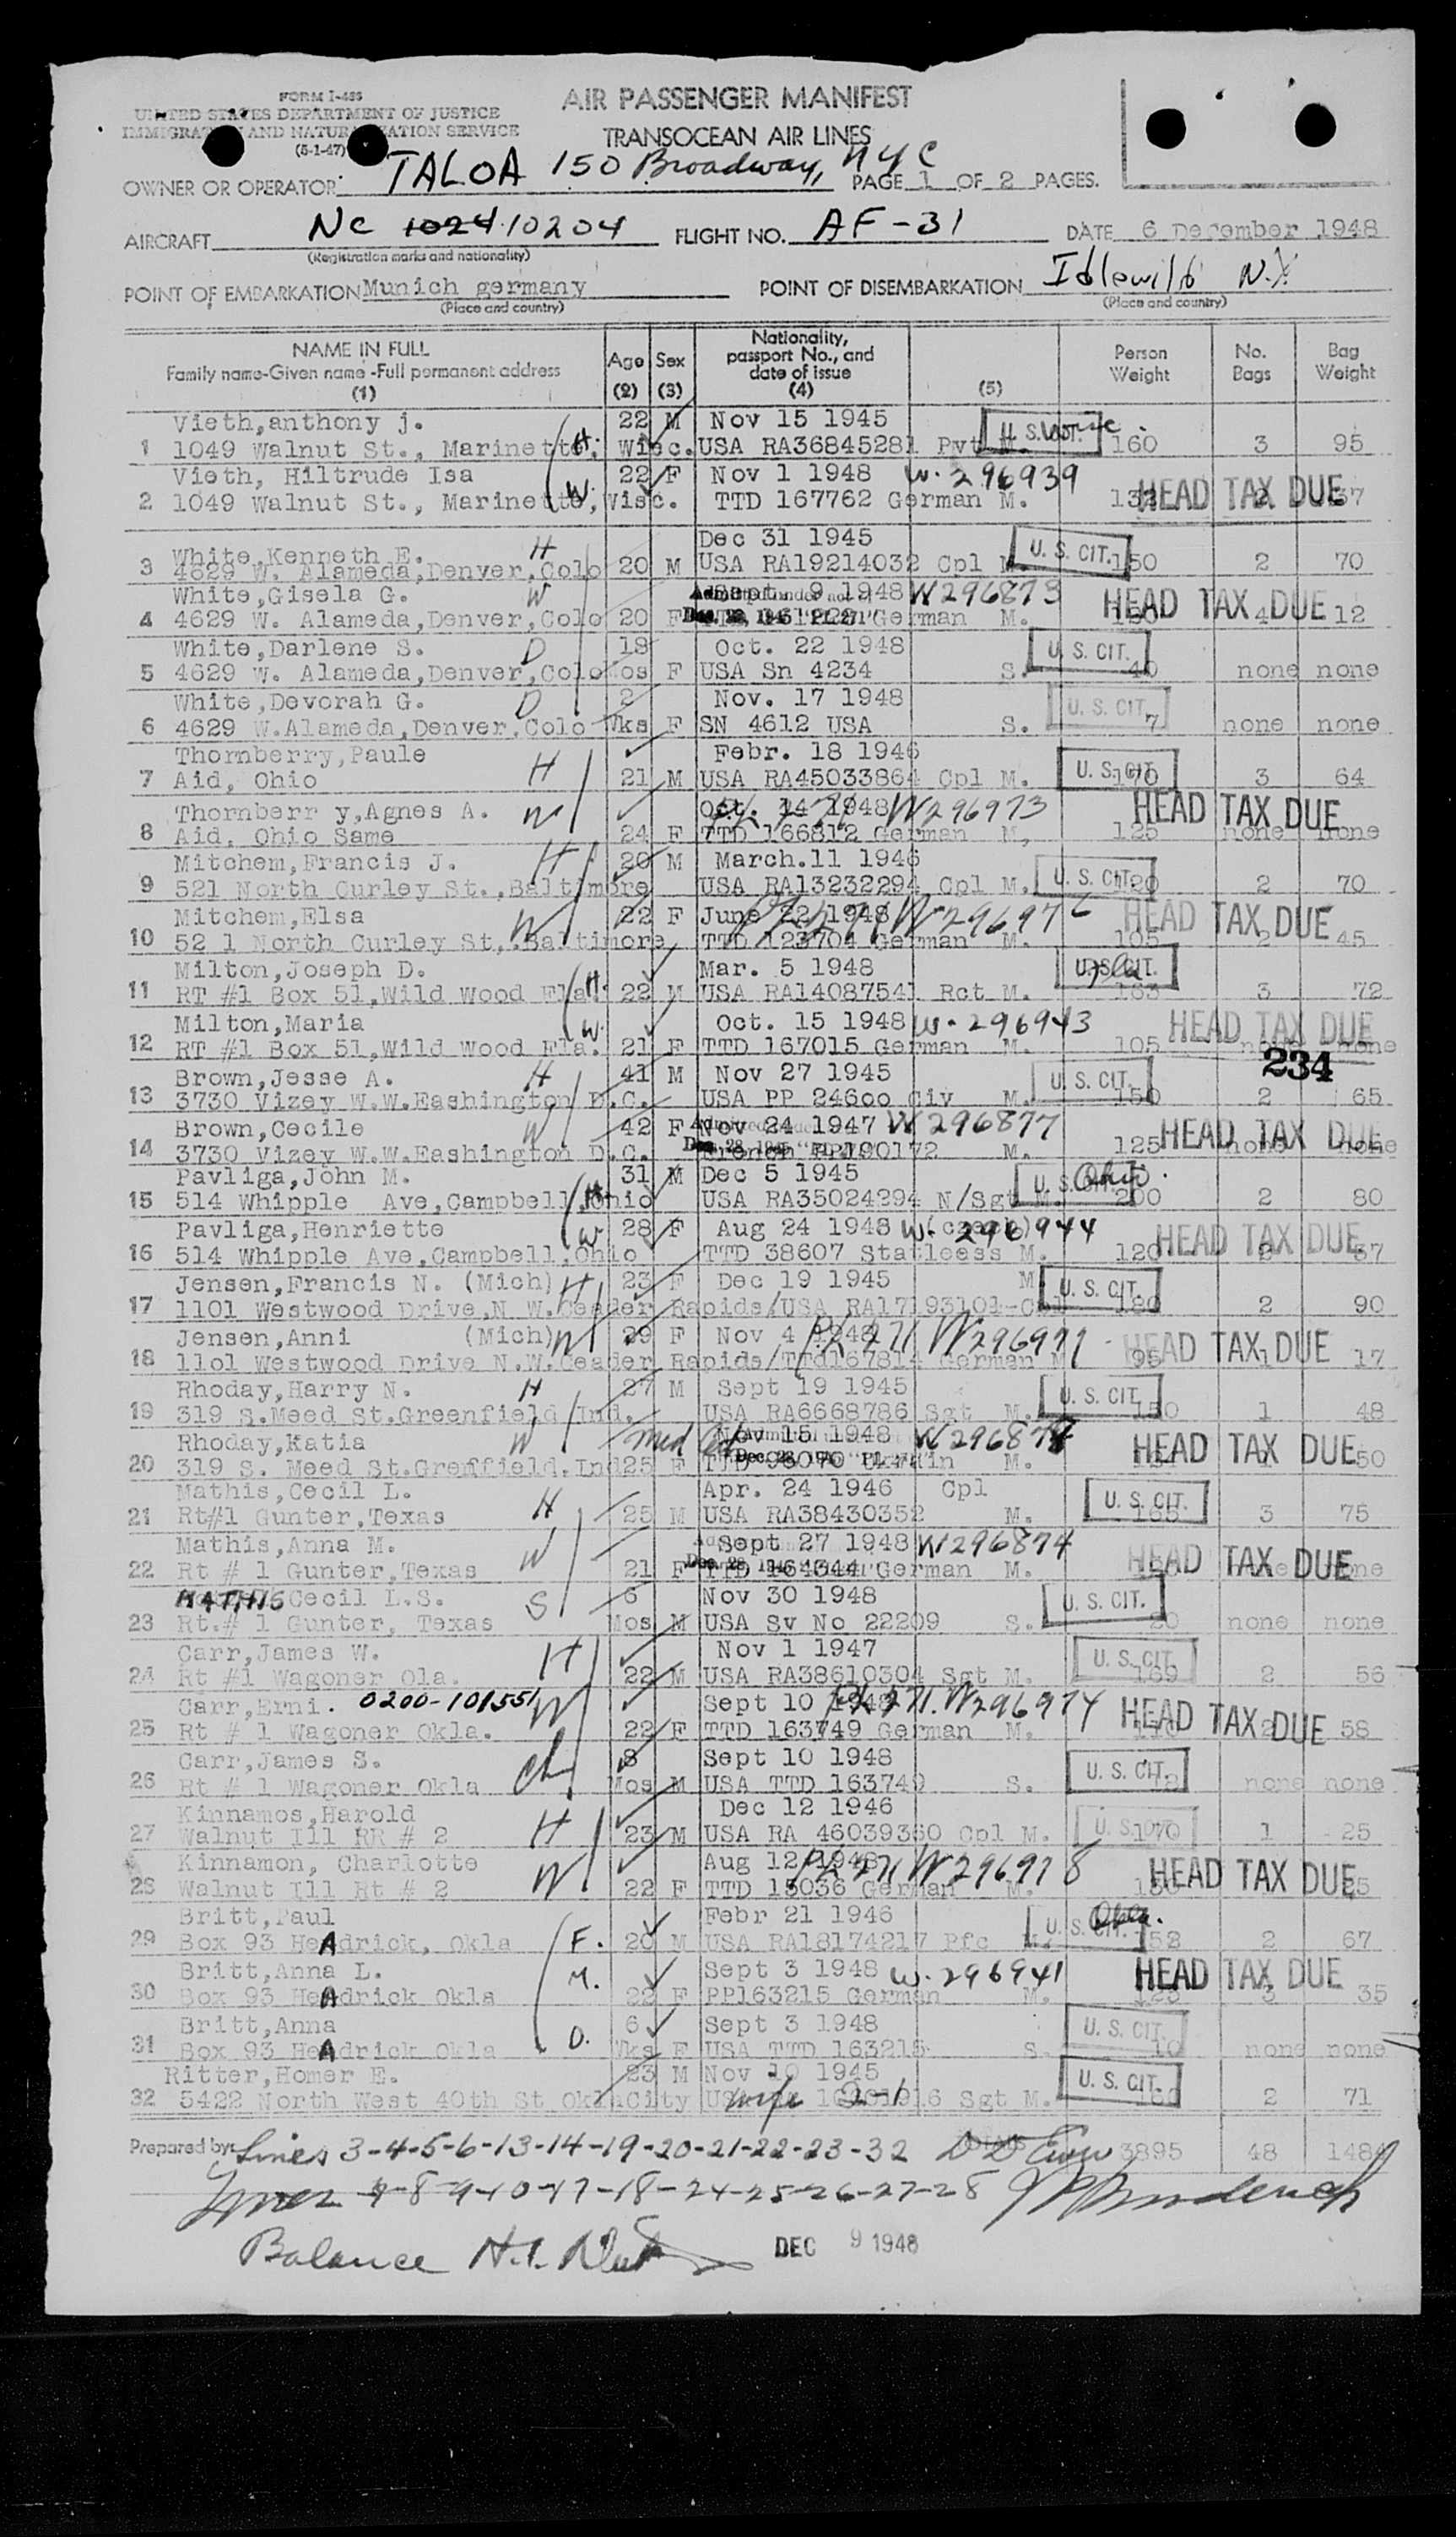 FORM I-466
UNITED STATES DEPARTMENT OF JUSTICE
IMMIGRATION AND NATURALIZATION SERVICE
(5-1-47)
AIR PASSENGER MANIFEST
TRANSOCEAN AIR LINES
OWNER OR OPERATOR TALOA 150 Broadway, NYC PAGE 1 OF 2 PAGES.
AIRCRAFT NC 1024 10204 FLIGHT NO. AF-31 DATE 6 December 1948
(Registration marks and nationality)
POINT OF EMBARKATION Munich germany POINT OF DISEMBARKATION Idlewild N.Y.
(Place and country) (Place and country)
NAME IN FULL Family name-Given name-Full permanent address (1) Age (2) Sex (3) Nationality, passport No., and date of issue (4) (5) Person Weight No. Bags Bag Weight
Vieth,anthony j. 22 M Nov 15 1945 U. S. CIT.
1 1049 Walnut St., Marinette, Wisc. H. USA RA36845281 Pvt M. 160 3 95
Vieth, Hiltrude Isa 22 F Nov 1 1948 W. 296939
2 1049 Walnut St., Marinette, Wisc. W. TTD 167762 German M. HEAD TAX DUE
Dec 31 1945
White,Kenneth E. H
3 4629 W. Alameda,Denver,Colo 20 M USA RA19214032 Cpl M. U. S. CIT. 150 2 70
White,Gisela G. W Sept. 9 1948 W296873
4 4629 W. Alameda,Denver,Colo 20 F German M. HEAD TAX DUE 4 12
White,Darlene S. D 18 Oct. 22 1948 U. S. CIT.
5 4629 W. Alameda,Denver,Colo Mos F USA Sn 4234 S. 40 none none
White,Devorah G. D 2 Nov. 17 1948 U. S. CIT.
6 4629 W.Alameda,Denver,Colo Wks F SN 4612 USA S. 7 none none
Thornberry,Paule H Febr. 18 1946
7 Aid, Ohio 21 M USA RA45033864 Cpl M. U. S. CIT. 170 3 64
Thornberr y,Agnes A. W Oct. 14 1948 W296973 HEAD TAX DUE
8 Aid, Ohio Same 24 F TTD 166812 German M, 125 none none
Mitchem,Francis J. H 20 M March.11 1946
9 521 North Curley St.,Baltimore USA RA13232294 Cpl M. U. S. CIT. 120 2 70
Mitchem,Elsa W 22 F June 22 1948 PL 271 W296976 HEAD TAX DUE
10 52 1 North Curley St,.Baltimore TTD 123704 German M. 105 2 45
Milton,Joseph D. Mar. 5 1948 U. S. CIT. Fla
11 RT #1 Box 51,Wild Wood Fla. H. 22 M USA RA14087541 Rct M. 163 3 72
Milton,Maria W. Oct. 15 1948 W. 296943 HEAD TAX DUE
12 RT #1 Box 51,Wild Wood Fla. 21 F TTD 167015 German M. 105 none none
234
Brown,Jesse A. H 41 M Nov 27 1945 U. S. CIT.
13 3730 Vizey W.W.Eashington D.C. USA PP 246oo Civ M. 150 2 65
Brown,Cecile W 42 F Nov 24 1947 W296877
14 3730 Vizey W.W.Eashington D.C. French PP190172 M. 125 HEAD TAX DUE none none
Pavliga,John M. 31 M Dec 5 1945 U. S. CIT. Ohio.
15 514 Whipple Ave,Campbell,Ohio H. USA RA35024294 N/Sgt M. 200 2 80
Pavliga,Henriette W. 28 F Aug 24 1948 (Czech) W. 296944
16 514 Whipple Ave,Campbell,Ohio TTD 38607 Statleess M. 120 HEAD TAX DUE 2 37
Jensen,Francis N. (Mich) H 23 F Dec 19 1945 M U. S. CIT.
17 1101 Westwood Drive,N W.Ceader Rapids/USA RA17193101-Cpl 180 2 90
Jensen,Anni (Mich) W 29 F Nov 4 1948 PL 271 W296977
18 11o1 Westwood Drive N.W.Ceader Rapids/TTd167814 German M 95 HEAD TAX DUE 1 17
Rhoday,Harry N. H 27 M Sept 19 1945 U. S. CIT.
19 319 S.Meed St.Greenfield Ind. USA RA6668786 Sgt M. 150 1 48
Rhoday,Katia W med Nov 15 1948 W296878
20 319 S. Meed St.Greffield,Ind 25 F M. HEAD TAX DUE 50
Mathis,Cecil L. H Apr. 24 1946 Cpl
21 Rt#1 Gunter,Texas 25 M USA RA38430352 M. U. S. CIT. 165 3 75
Mathis,Anna M. W Sept 27 1948 W296874
22 Rt # 1 Gunter,Texas 21 F TTD 164344 German M. HEAD TAX DUE
MATHIS Cecil L.S. S 6 Nov 30 1948 U. S. CIT.
23 Rt.# 1 Gunter, Texas Mos M USA Sv No 22209 S. 20 none none
Carr,James W. H Nov 1 1947
24 Rt #1 Wagoner Ola. 22 M USA RA38610304 Sgt M. U. S. CIT. 169 2 56
Carr,Erni. 0200-101551 W Sept 10 1948 PL 271. W296974
25 Rt # 1 Wagoner Okla. 22 F TTD 163749 German M. HEAD TAX DUE 2 58
Carr,James S. Ch 8 Sept 10 1948
26 Rt # 1 Wagoner Okla Mos M USA TTD 163749 S. U. S. CIT. none none
Kinnamos,Harold H Dec 12 1946
27 Walnut Ill RR # 2 23 M USA RA 46039360 Cpl M. U. S. CIT. 170 1 25
Kinnamon, Charlotte W Aug 12 1948 PL 271 W296978
28 Walnut Ill Rt # 2 22 F TTD 15036 German M. HEAD TAX DUE
Britt,Paul Febr 21 1946
29 Box 93 HeAdrick, Okla F. 20 M USA RA18174217 Pfc M. U. S. CIT. Okla. 152 2 67
Britt,Anna L. M. Sept 3 1948 W. 296941
30 Box 93 HeAdrick Okla 22 F PP163215 German M. 123 HEAD TAX DUE 3 35
Britt,Anna D. 6 Sept 3 1948
31 Box 93 HeAdrick Okla Wks F USA TTD 163215 S. U. S. CIT. 10 none none
Ritter,Homer E. 23 M Nov 10 1945
32 5422 North West 40th St OklaCity wife 2-1 Sgt M. U. S. CIT. 160 2 71
Prepared by: Lines 3-4-5-6-13-14-19-20-21-22-23-32 3895 48 1484
Lines 7-8-9-10-17-18-24-25-26-27-28
Balance DEC 9 1948